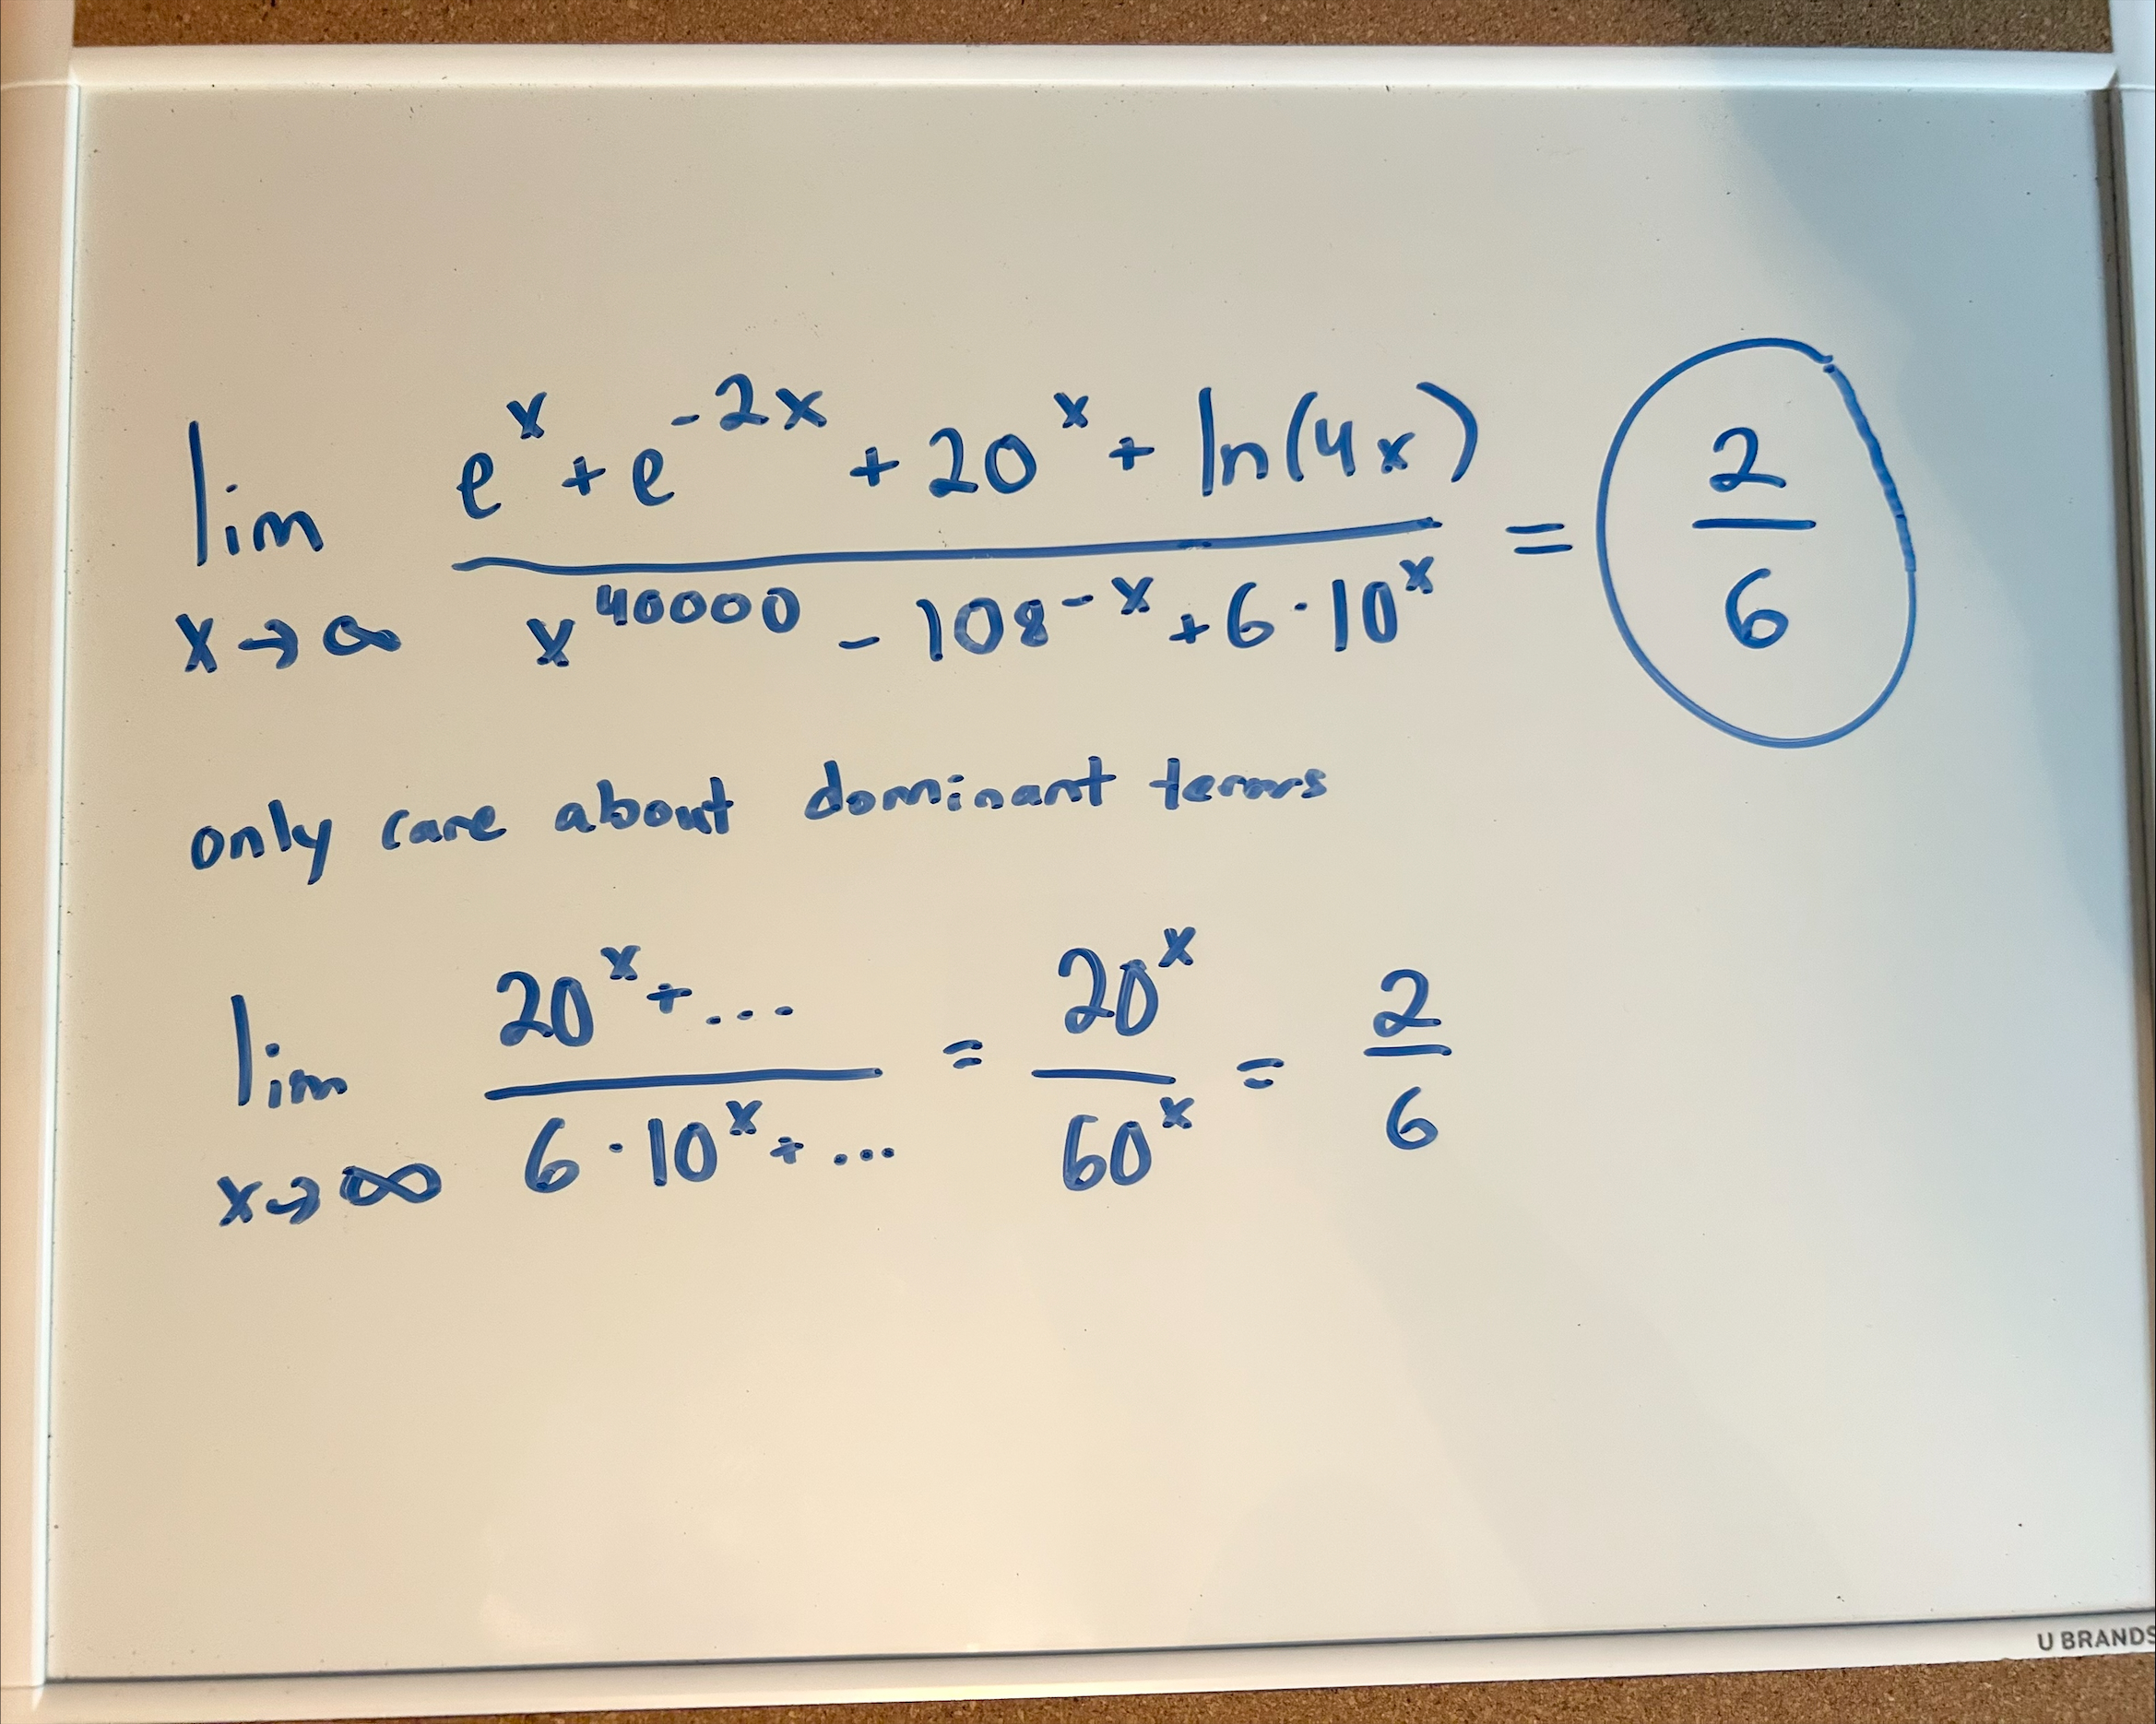 lim x→∞ (e^x + e^-2x + 20^x + ln(4x)) / (x^40000 - 108^-x + 6·10^x) = 2/6
only care about dominant terms
lim x→∞ (20^x + ...) / (6·10^x + ...) = 20^x / 60^x = 2/6
U BRANDS